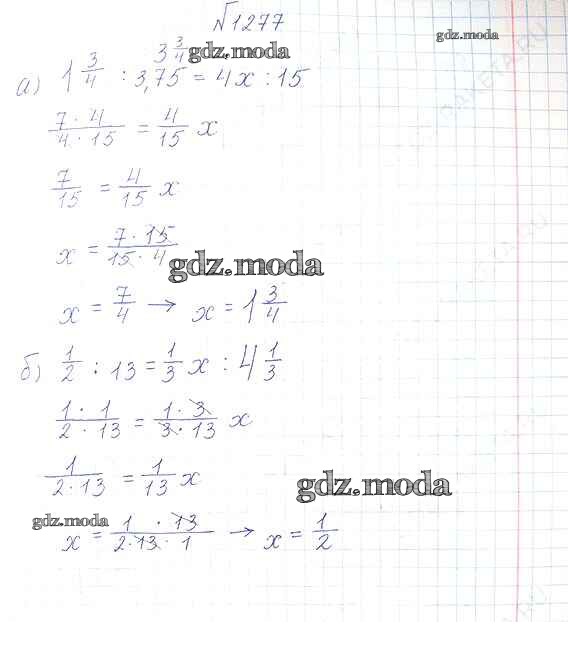 №1277
gdz.moda
3 3/4
gdz.moda
а) 1 3/4 : 3,75 = 4x : 15
7 · 4 / 4 · 15 = 4/15 x
7/15 = 4/15 x
x = 7 · 15 / 15 · 4
gdz.moda
x = 7/4 → x = 1 3/4
б) 1/2 : 13 = 1/3 x : 4 1/3
1 · 1 / 2 · 13 = 1 · 3 / 3 · 13 x
1 / 2 · 13 = 1/13 x
gdz.moda
gdz.moda
x = 1 · 13 / 2 · 13 · 1 → x = 1/2